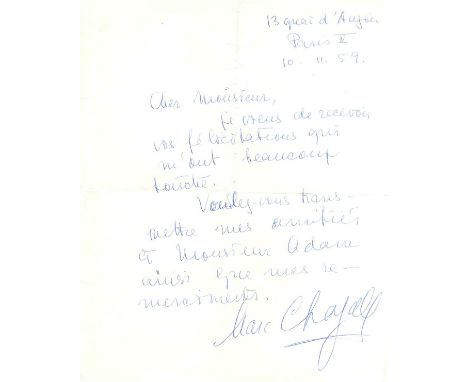 13 quai d'Anjou
Paris IV
10. 11. 59.
Cher Monsieur,
je viens de recevoir
vos félicitations qui
m'ont beaucoup
touché.
Voulez-vous trans-
mettre mes amitiés
à Monsieur Adam
ainsi que mes re-
merciments.
Marc Chagall